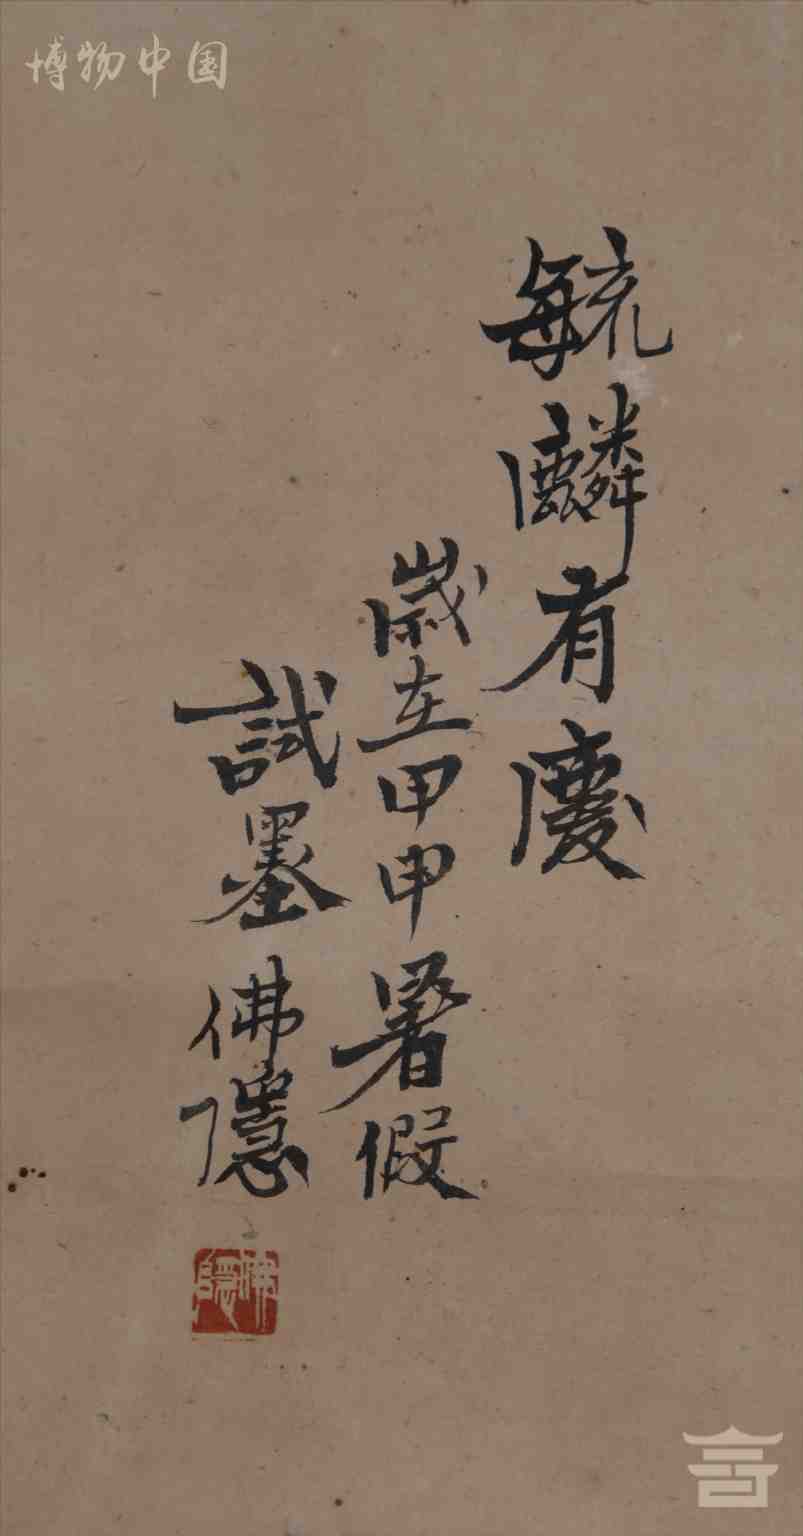 博物中国
毓麟有慶
歲在甲申暑假
試墨佛隱
佛隱